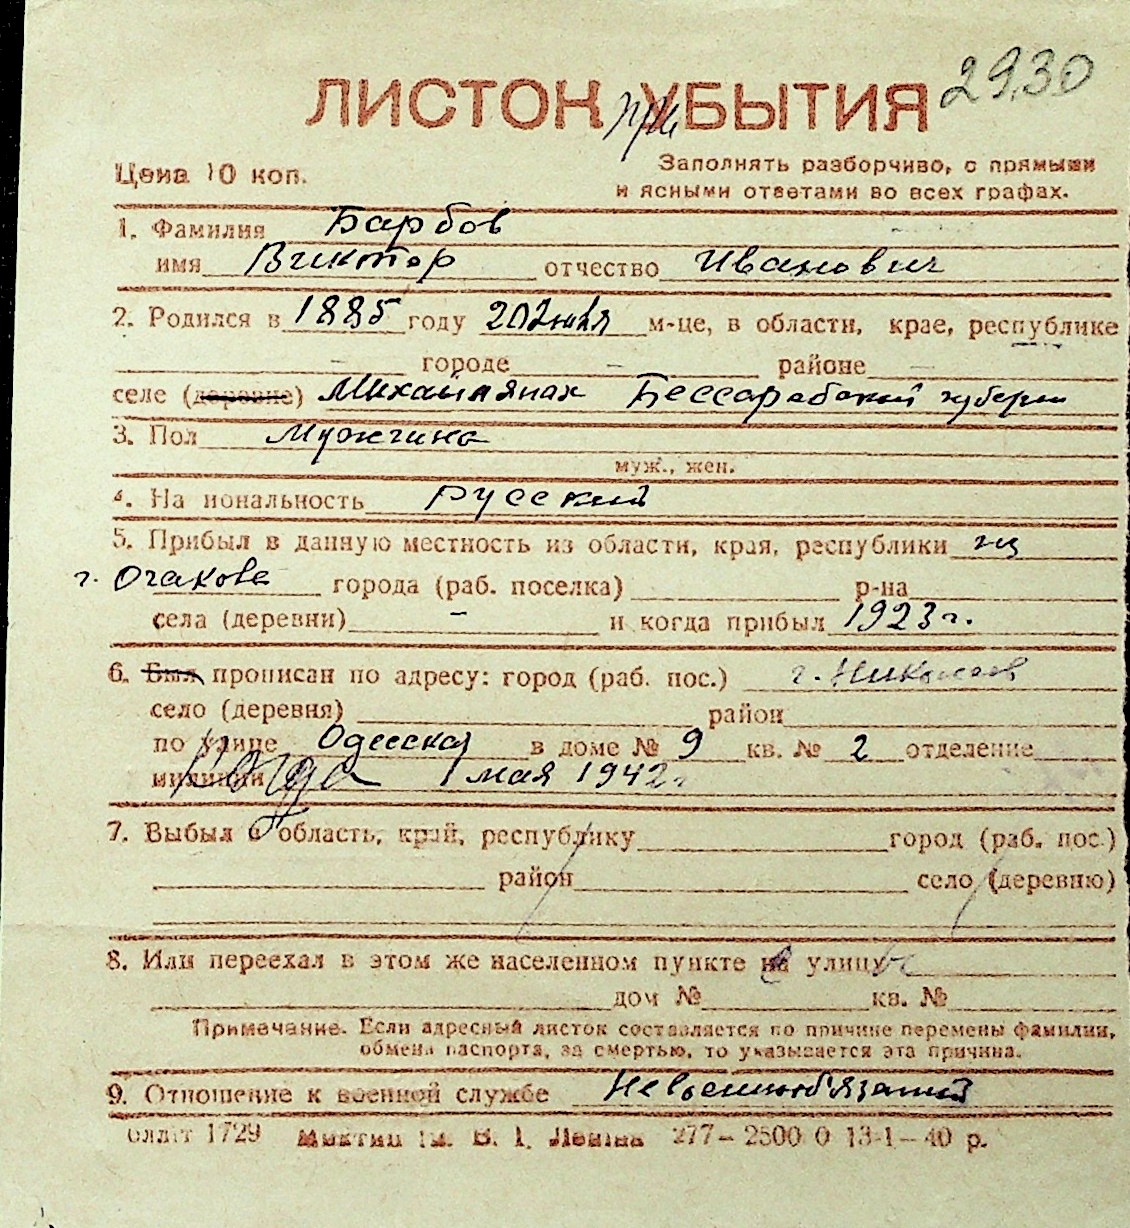 2930
ЛИСТОК УБЫТИЯ
при
Цена 10 коп.
Заполнять разборчиво, с прямыми
и ясными ответами во всех графах.
1. Фамилия Барбов
имя Виктор отчество Иванович
2. Родился в 1885 году 20 июля м-це, в области, крае, республике
— городе — районе —
селе (деревне) Бессарабской губерни
3. Пол Мужчина
муж., жен.
4. На иональность русский
5. Прибыл в данную местность из области, края, республики из
г. Очакова города (раб. поселка) р-на
села (деревни) — и когда прибыл 1923 г.
6. Был прописан по адресу: город (раб. пос.) г. Николаев
село (деревня) район
по улице Одесская в доме № 9 кв. № 2 отделение
милиции Когда 1 мая 1942 г
7. Выбыл в область, край, республику город (раб. пос.)
район село (деревню)
8. Или переехал в этом же населенном пункте на улицу
дом № кв. №
Примечание. Если адресный листок составляется по причине перемены фамилии,
обмена паспорта, за смертью, то указывается эта причина.
9. Отношение к военной службе Невоеннообязаний
1729 277–2500 0 13-1–40 р.